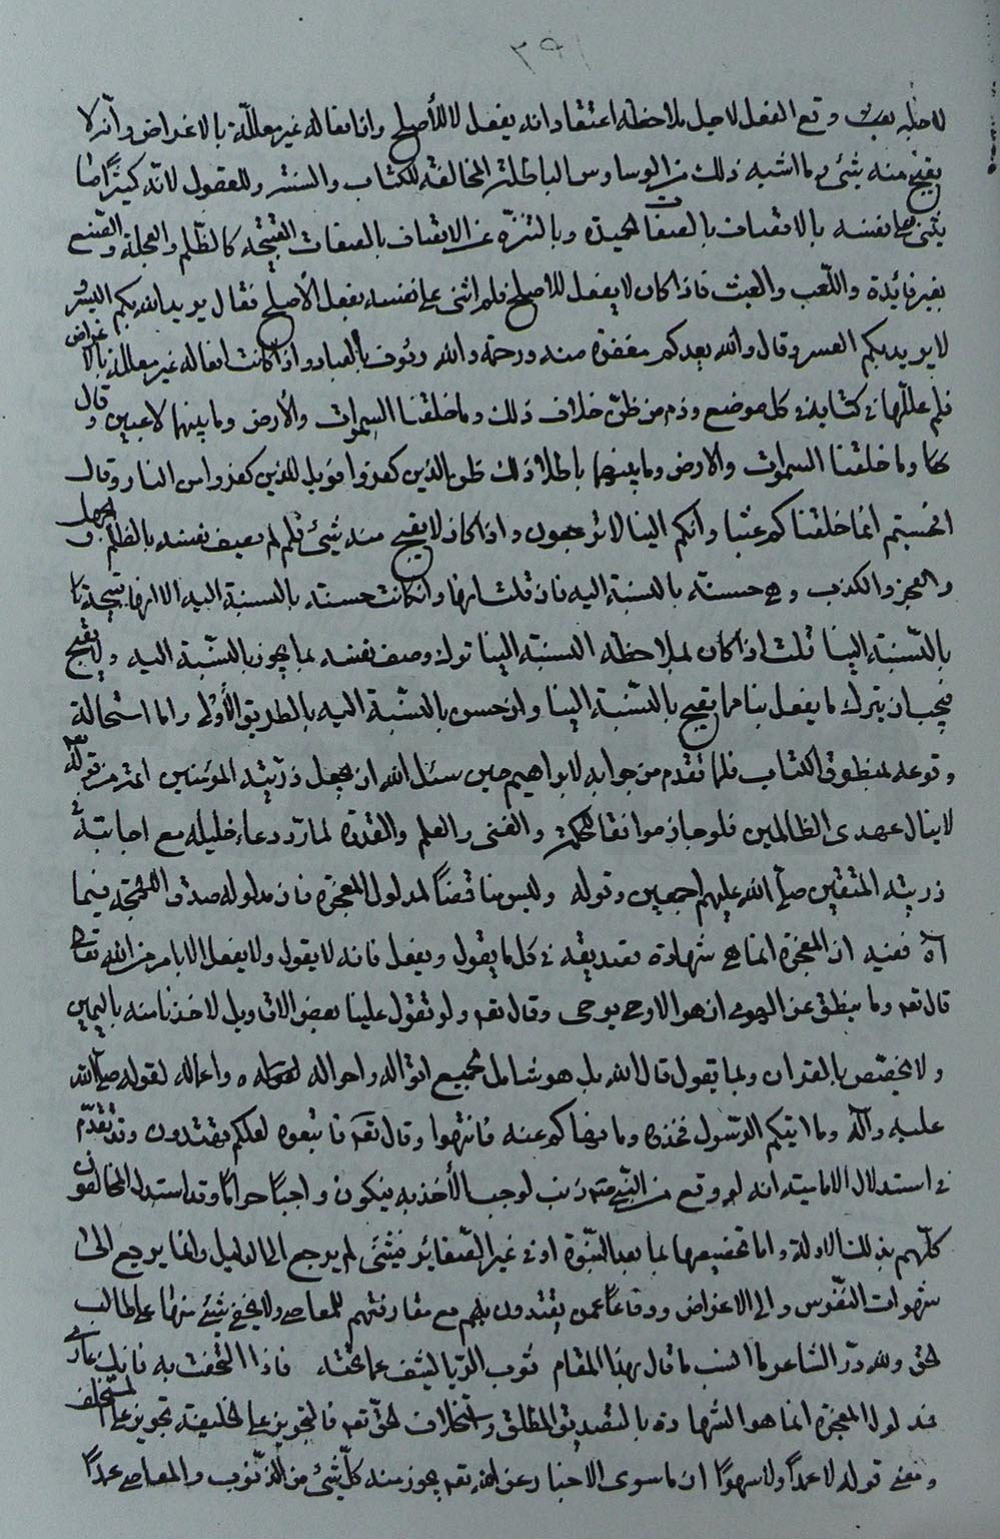 ٢٩١
لاجله بحث وقع الفعل لاجل ملاحظة اعتقاد انه يفعل لا للأصلح وان افعاله غير معللة بالاغراض وأنه لا
يقبح منه شئ وما اشبه ذلك من الوساوس الباطلة المخالفة للكتاب والسنة وللعقول لانه كثيرًا ما
يثنى على نفسه بالاتصاف بالصفات الحميدة وبالتنزه عن الاتصاف بالصفات القبيحة كالظلم والعجلة والصنع
بغير فائدة واللعب والعبث فاذا كان لا يفعل للاصلح فلم اثنى على نفسه بفعل الأصلح فقال يريد الله بكم اليسر و
لا يريد بكم العسر وقال والله يعدكم مغفرة منه ورحمة والله رؤف بالعباد واذا كانت افعاله غير معللة بالاغراض
فلم عللها في كتابه في كل موضع وذم من ظن خلاف ذلك وما خلقنا السموات والأرض وما بينهما لاعبين وقال
وما خلقنا السموات والارض وما بينهما باطلا ذلك ظن الذين كفروا فويل للذين كفروا من النار وقال
افحسبتم انما خلقناكم عبثا وانكم الينا لا ترجعون واذا كان لا يقبح منه شئ فلم لم يصف نفسه بالظلم والجهل
والعجز والكذب وهى حسنة بالنسبة اليه فان قلت انها وان كانت حسنة بالنسبة اليه الا انها قبيحة
بالنسبة الينا قلت اذا كان لملاحظة النسبة الينا ترك وصف نفسه بما يجوز بالنسبة اليه ولا يقبح
فيجب ان يترك ما يفعل بنا مما يقبح بالنسبة الينا وان حسن بالنسبة اليه بالطريق الأولى واما استحالة
وقوعه بمنطوق الكتاب فلما تقدم من جوابه لابراهيم حين سئل الله ان يجعل ذريته المؤمنين ائمة من قوله تع
لا ينال عهدى الظالمين فلو جاز موافقا للحكمة والغنى والعلم والقدرة لما رد دعاء خليله مع اجابته في
ذريته المتقين صلى الله عليهم اجمعين وقوله وليس مناقضًا لمدلول المعجزة فان مدلوله صدق اللهجة فيما
اه ففيه ان المعجزة انما هى شهادة بتصديقه في كل ما يقول ويفعل فانه لا يقول ولا يفعل الا بامر من الله تعالى
قال تع وما ينطق عن الهوى ان هو الا وحى يوحى وقال تع ولو تقول علينا بعض الاقاويل لاخذنا منه باليمين
ولا يختص بالقران وبما يقول قال الله بل هو شامل لجميع اقواله واحواله واعماله لقوله صلى الله
عليه وآله وما اتيكم الرسول فخذوه وما نهاكم عنه فانتهوا وقال تع فاتبعوه لعلكم تهتدون وقد تقدم
في استدلال الامامية انه لو وقع من النبى ص ذنب لوجب الأخذ به فيكون واجبًا حرامًا وقد استدل المخالفون
كلهم بذلك الادلة واما تخصيصها بما بعد النبوة او في غير الصغائر فيشئ لم يرجع الى الدليل وانما يرجع الى
شهوات النفوس والى الاغراض ودفاعًا عمن يقتدون بهم مع مقارفتهم للمعاصى ولا يخفى شئ منها على طالب
الحق ولله در الشاعر وما انسب ما قال بهذا المقام ثوب الريا يشف عما تحته فاذا التحفت به فانك عارى
فمدلول المعجزة انما هو الشهادة بالتصديق المطلق واستخلاف الحق تع فالتجويز على الخليفة تجويز على المستخلف
ومعنى قوله لا عمدًا ولا سهوًا ان ما سوى الاخبار عن الله تع يجوز منه كل شئ من الذنوب والمعاصى عمدًا